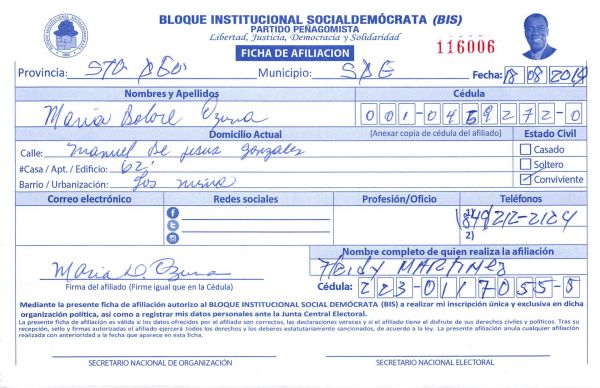 BLOQUE INSTITUCIONAL SOCIALDEMÓCRATA (BIS)
PARTIDO PEÑAGOMISTA
Libertad, Justicia, Democracia y Solidaridad
FICHA DE AFILIACION
116006
Provincia: STO DGO Municipio: SDE Fecha: 18 08 2019
Nombres y Apellidos Cédula
Maria Ozuna 001-0459272-0
Domicilio Actual (Anexar copia de cédula del afiliado) Estado Civil
Calle: Manuel De jesus gonzales
Casado
#Casa / Apt. / Edificio: 62
Soltero
Barrio / Urbanización: Los mina
Conviviente
Correo electrónico Redes sociales Profesión/Oficio Teléfonos
1) 849 212-2124
2)
Nombre completo de quien realiza la afiliación
Maria D. Ozuna Heidy MARTINEZ
Firma del afiliado (Firme igual que en la Cédula) Cédula: 223-0117055-8
Mediante la presente ficha de afiliación autorizo al BLOQUE INSTITUCIONAL SOCIAL DEMÓCRATA (BIS) a realizar mi inscripción única y exclusiva en dicha
organización política, asi como a registrar mis datos personales ante la Junta Central Electoral.
La presente ficha de afiliación es válida si los datos ofrecidos por el afiliado son correctos, las declaraciones veraces y si el afiliado tiene el disfrute de sus derechos civiles y políticos. Tras su
recepción, sello y firmas autorizadas el afiliado ejercerá todos los derechos y los deberes estatutariamente sancionados, de acuerdo a la ley. La presente afiliación anula cualquier afiliación
realizada con anterioridad a la fecha que aparece en esta ficha.
SECRETARIO NACIONAL DE ORGANIZACIÓN SECRETARIO NACIONAL ELECTORAL